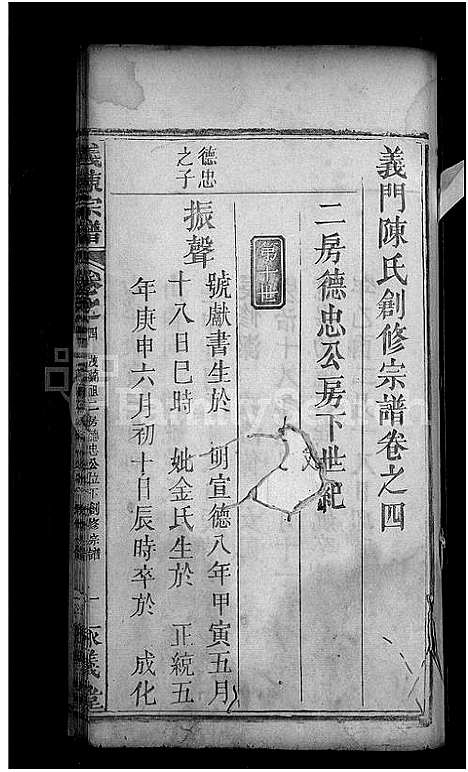 義門陳氏創修宗譜卷之四
二房德忠公房下世紀
第十世
德忠
之子
振聲
號獻書生於 明宣德八年甲寅五月
十八日巳時 妣金氏生於 正統五
年庚申六月初十日辰時卒於 成化
義陳宗譜
卷之四
二房德忠公位下創修宗譜
一
義堂